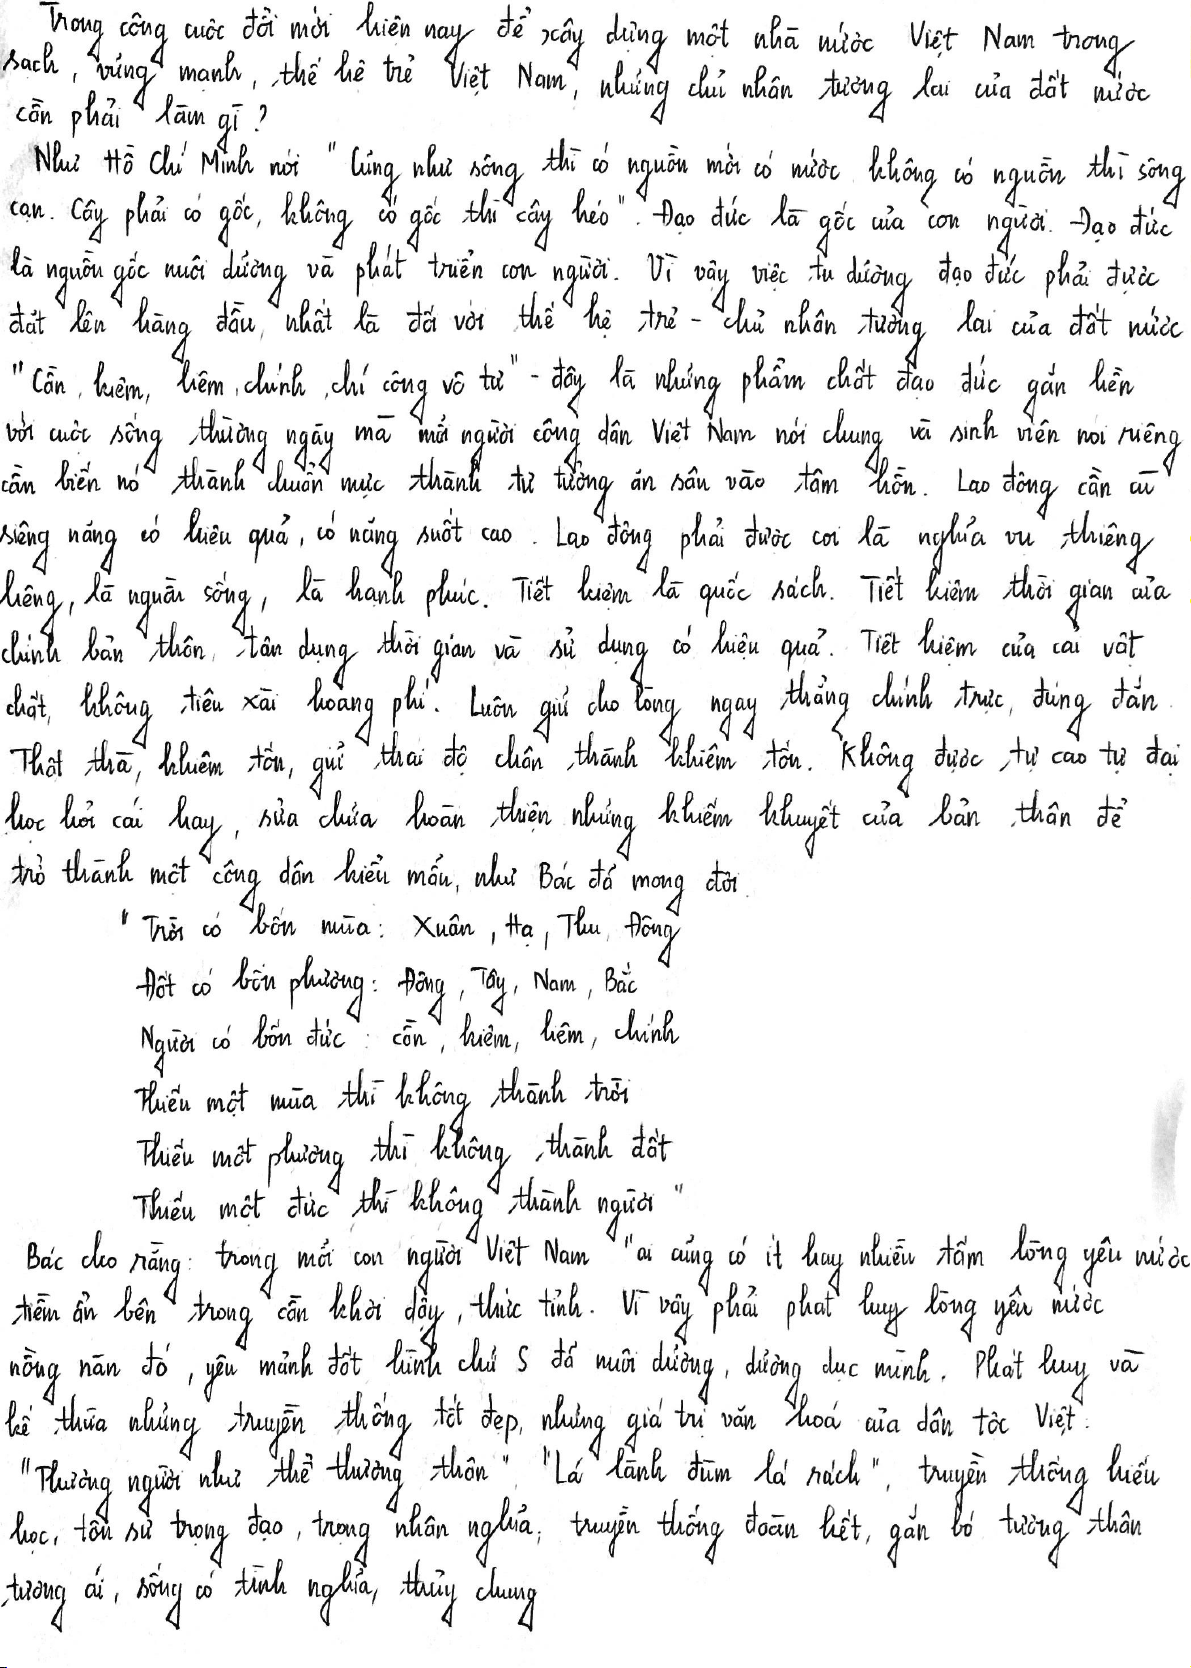 Trong công cuộc đổi mới hiện nay để xây dựng một nhà nước Việt Nam trong
sạch, vững mạnh, thế hệ trẻ Việt Nam, những chủ nhân tương lai của đất nước
cần phải làm gì?
Như Hồ Chí Minh nói "Cũng như sông thì có nguồn mới có nước không có nguồn thì sông
cạn. Cây phải có gốc, không có gốc thì cây héo". Đạo đức là gốc của con người. Đạo đức
là nguồn gốc nuôi dưỡng và phát triển con người. Vì vậy việc tu dưỡng đạo đức phải được
đặt lên hàng đầu, nhất là đối với thế hệ trẻ - chủ nhân tương lai của đất nước
"Cần, kiệm, liêm, chính, chí công vô tư" - đây là những phẩm chất đạo đức gắn liền
với cuộc sống thường ngày mà mỗi người công dân Việt Nam nói chung và sinh viên nói riêng
cần biến nó thành chuẩn mực thành tư tưởng ăn sâu vào tâm hồn. Lao động cần cù
siêng năng có hiệu quả, có năng suất cao. Lao động phải được coi là nghĩa vụ thiêng
liêng, là nguồn sống, là hạnh phúc. Tiết kiệm là quốc sách. Tiết kiệm thời gian của
chính bản thân, tận dụng thời gian và sử dụng có hiệu quả. Tiết kiệm của cải vật
chất, không tiêu xài hoang phí. Luôn giữ cho lòng ngay thẳng chính trực, đúng đắn.
Thật thà, khiêm tốn, giữ thái độ chân thành khiêm tốn. Không được tự cao tự đại
học hỏi cái hay, sửa chữa hoàn thiện những khiếm khuyết của bản thân để
trở thành một công dân kiểu mẫu, như Bác đã mong đợi.
"Trời có bốn mùa: Xuân, Hạ, Thu, Đông
Đất có bốn phương: Đông, Tây, Nam, Bắc
Người có bốn đức: cần, kiệm, liêm, chính
Thiếu một mùa thì không thành trời
Thiếu một phương thì không thành đất
Thiếu một đức thì không thành người"
Bác cho rằng: trong mỗi con người Việt Nam "ai cũng có ít hay nhiều tấm lòng yêu nước
tiềm ẩn bên trong cần khơi dậy, thức tỉnh. Vì vậy phải phát huy lòng yêu nước
nồng nàn đó, yêu mảnh đất hình chữ S đã nuôi dưỡng, dưỡng dục mình. Phát huy và
kế thừa những truyền thống tốt đẹp, những giá trị văn hoá của dân tộc Việt:
"Thương người như thể thương thân" "Lá lành đùm lá rách", truyền thống hiếu
học, tôn sư trọng đạo, trọng nhân nghĩa, truyền thống đoàn kết, gắn bó tương thân
tương ái, sống có tình nghĩa, thủy chung